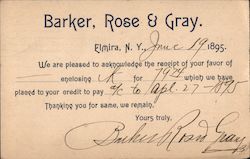 Barker, Rose & Gray.
Elmira, N. Y., June 19 1895.
We are pleased to acknowledge the receipt of your favor of
enclosing for which we have
placed to your credit to pay a/c to Apl. 27-1895
Thanking you for same, we remain,
Yours truly,
Barker Rose & Gray